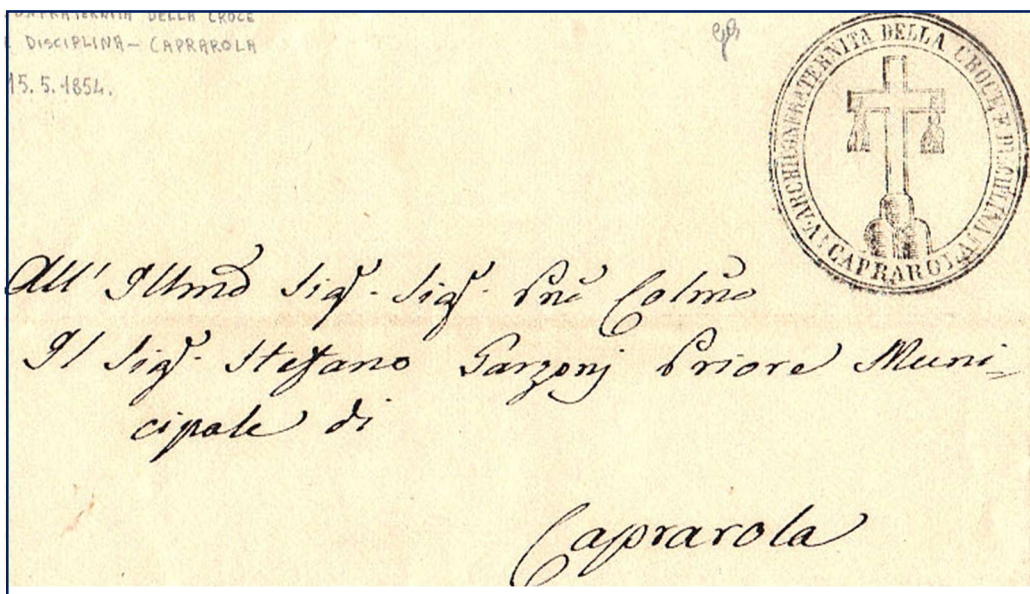 CONFRATERNITA DELLA CROCE
E DISCIPLINA - CAPRAROLA
15.5.1854.
ARCHICONFRATERNITA DELLA CROCE E DISCIPLINA
CAPRAROLA
All' Illmo Sig.r Sig.r Pne Colmo
Il Sig.r Stefano Garzonj Priore Muni=
cipale di
Caprarola